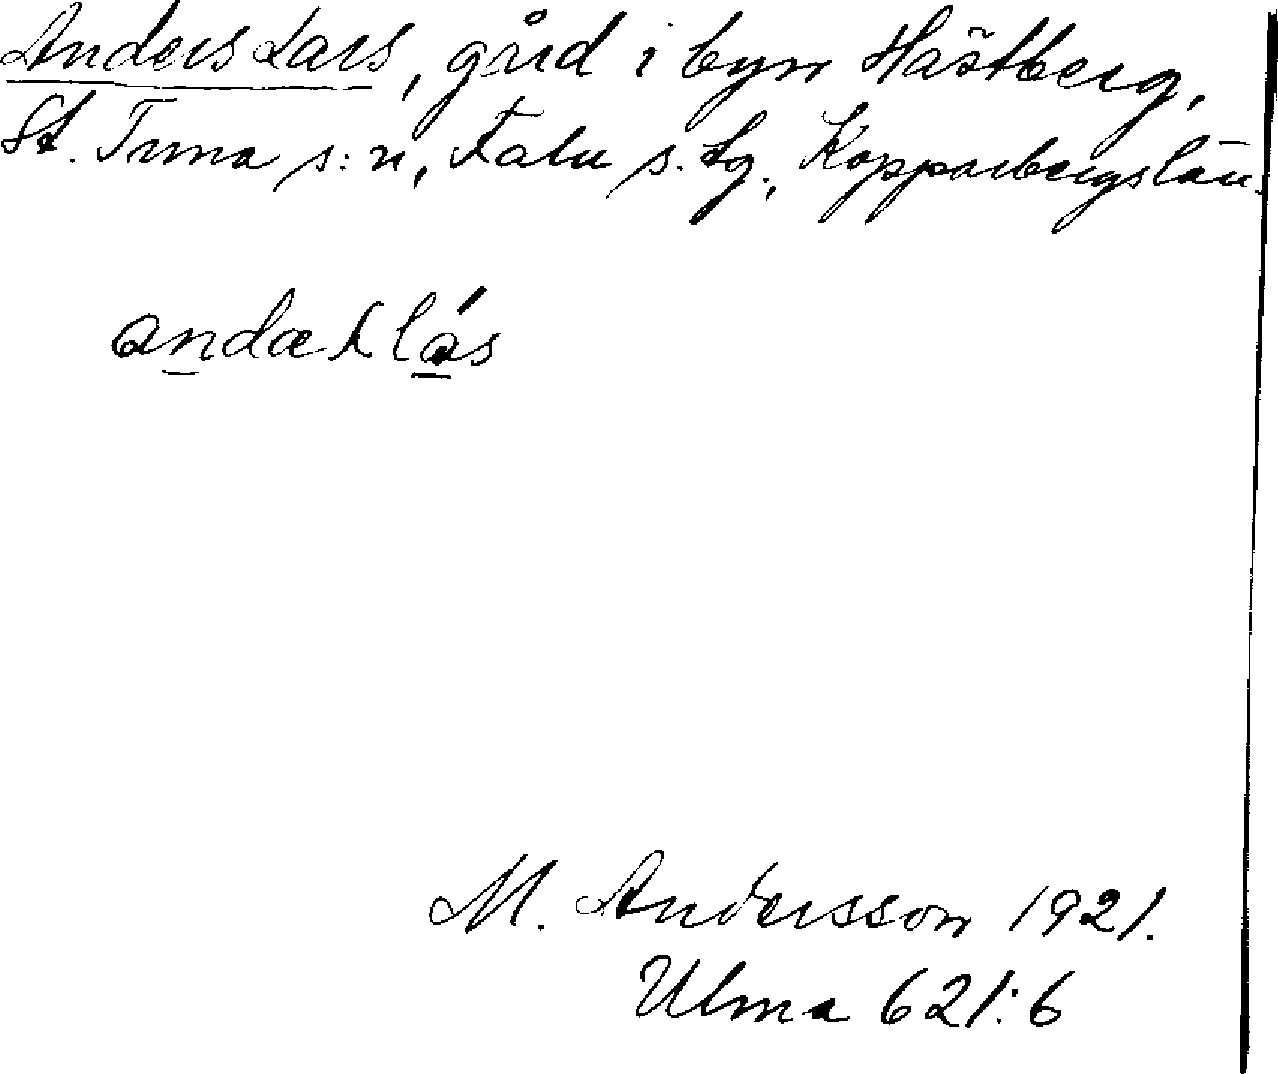 Anders Lars, gård i byn Hästberg,
St. Tuna s:n, Falu s.lg., Kopparbergs län.
M. Andersson 1921.
Ulma 621:6